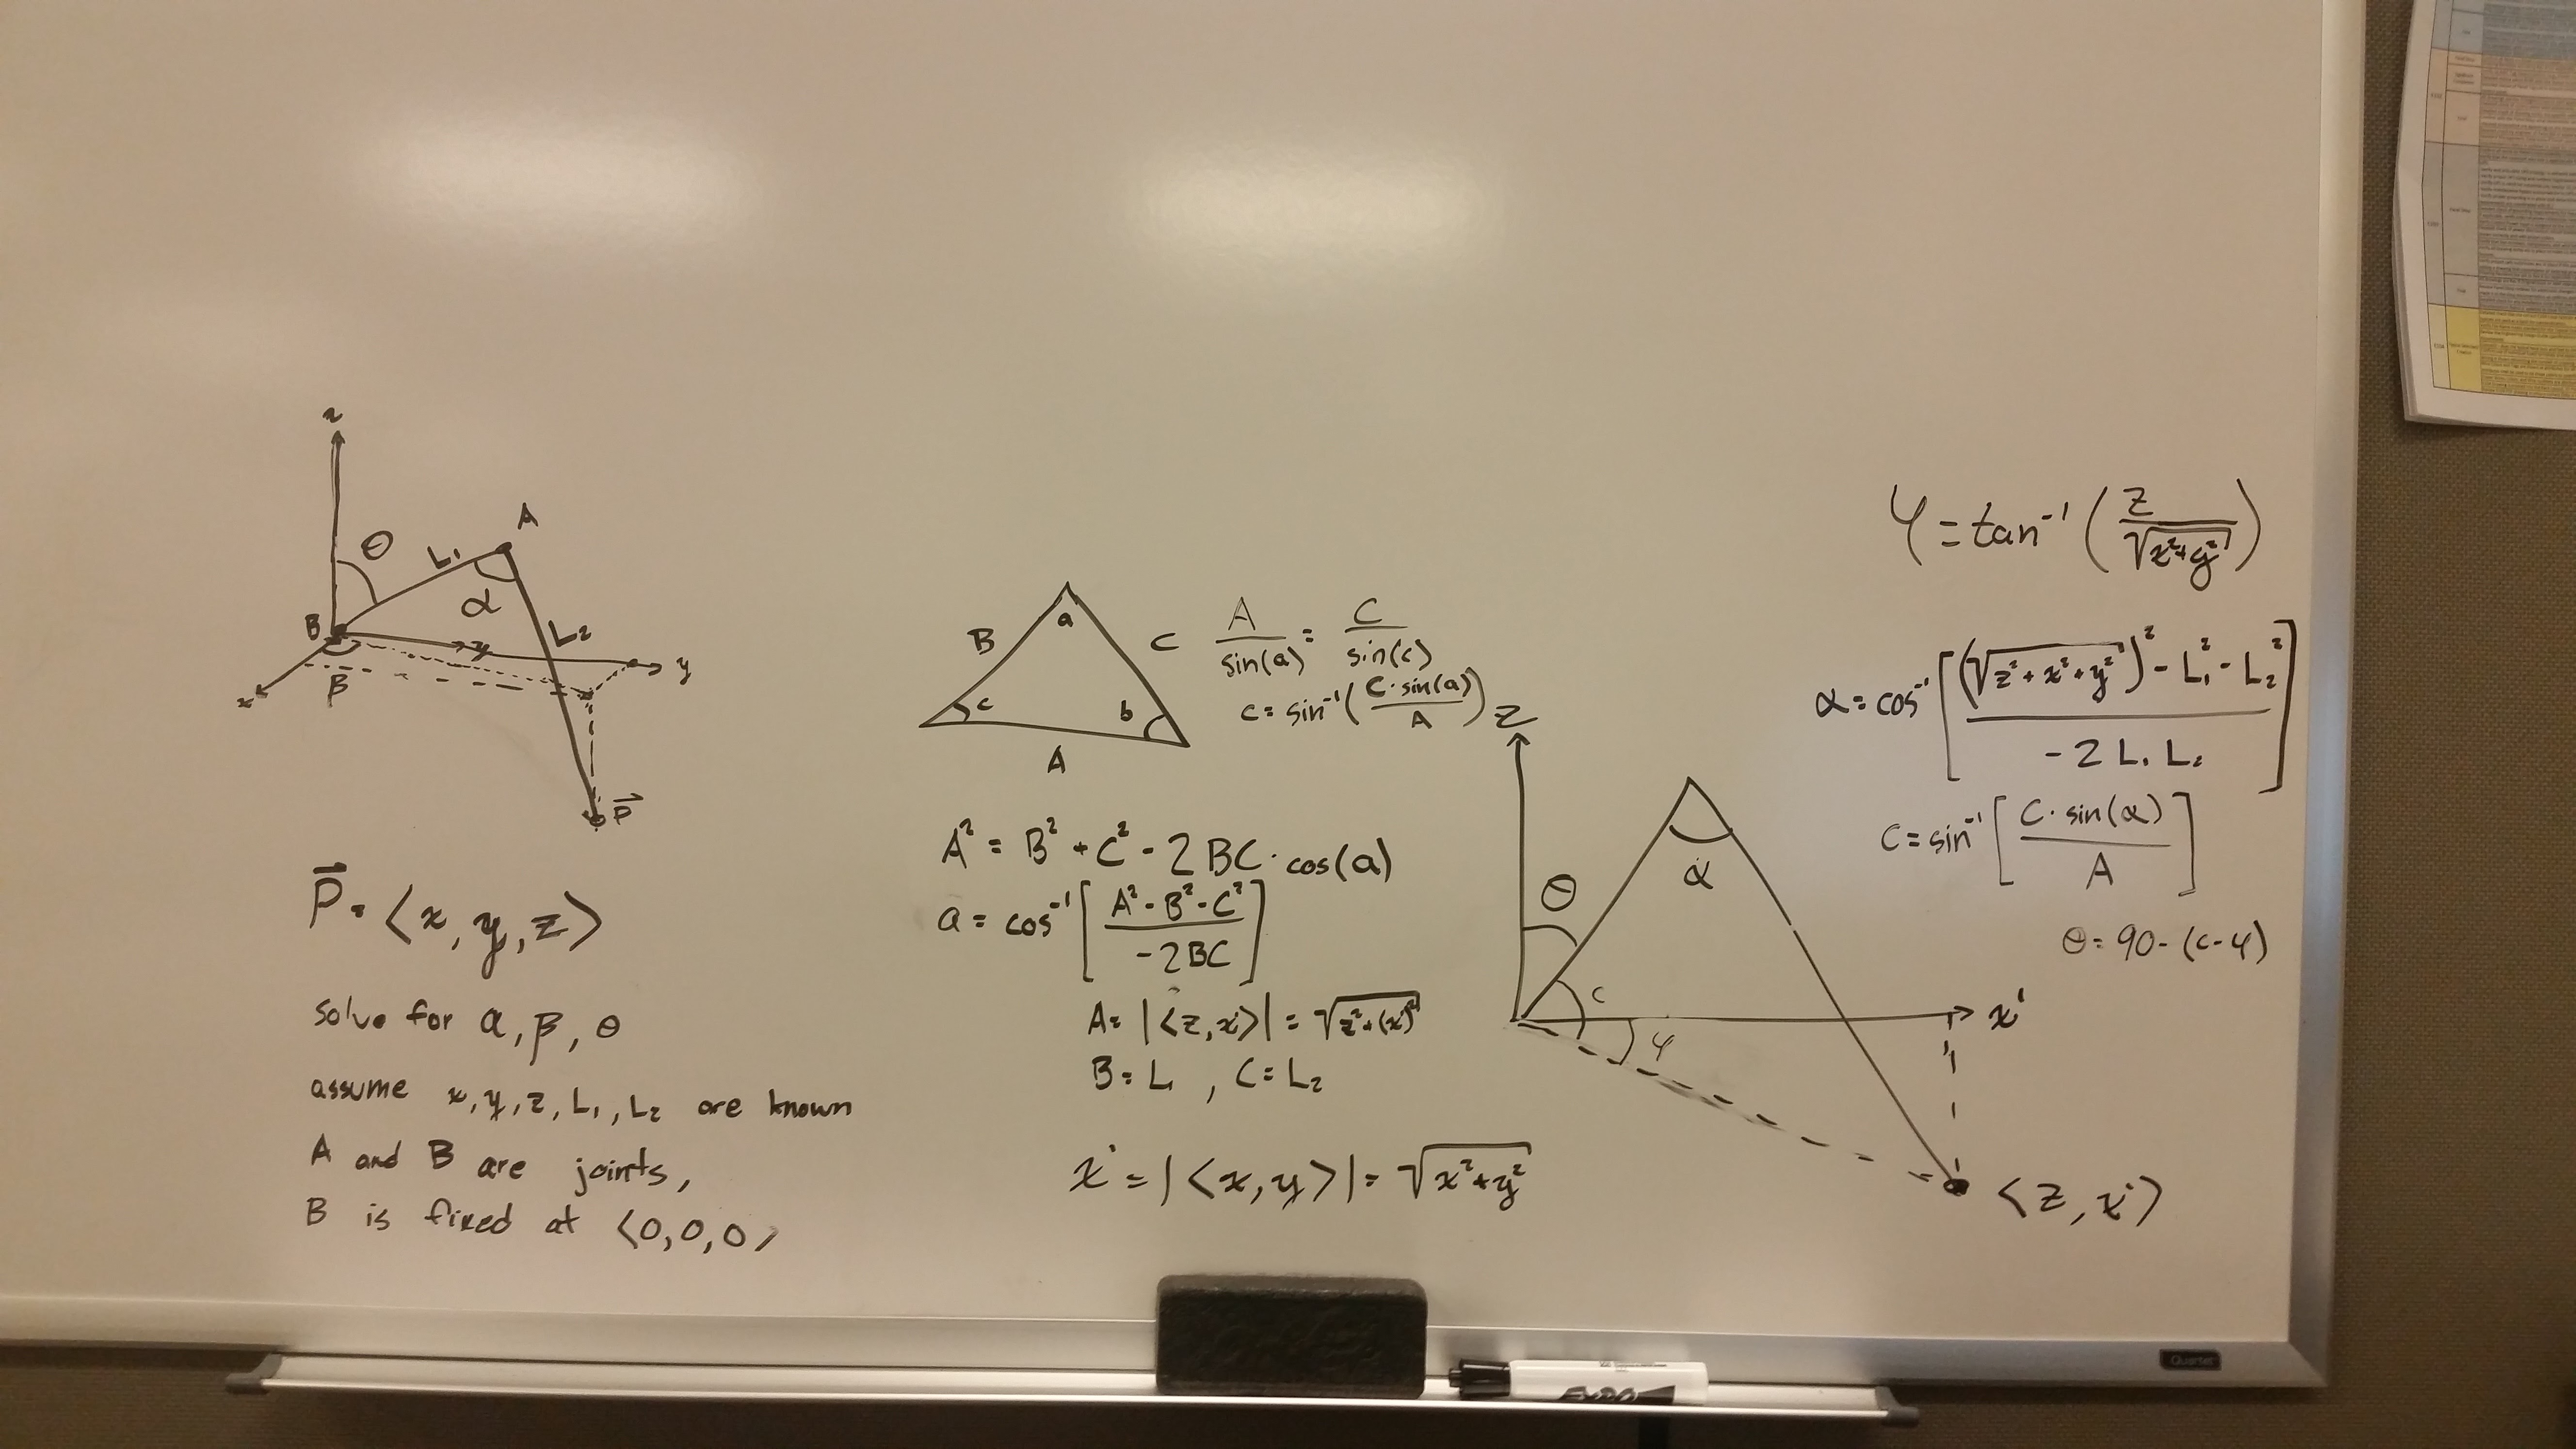 z
θ
L₁
A
α
B
L₂
y
y
x
β
P⃗
P⃗ = ⟨x, y, z⟩
solve for α, β, θ
assume x, y, z, L₁, L₂ are known
A and B are joints,
B is fixed at ⟨0,0,0⟩
B
a
C
c
b
A
A/sin(a) = C/sin(c)
c = sin⁻¹(C·sin(a)/A)
A² = B² + C² - 2BC·cos(a)
a = cos⁻¹[(A² - B² - C²)/(-2BC)]
A = |⟨z, x'⟩| = √(z² + (x')²)
B = L₁, C = L₂
x' = |⟨x, y⟩| = √(x² + y²)
z
θ
α
c
x'
φ
⟨z, x'⟩
φ = tan⁻¹(z/√(x² + y²))
α = cos⁻¹[((√(z² + x² + y²))² - L₁² - L₂²)/(-2 L₁ L₂)]
C = sin⁻¹[C·sin(α)/A]
θ = 90 - (c - φ)
Quartet
EXPO